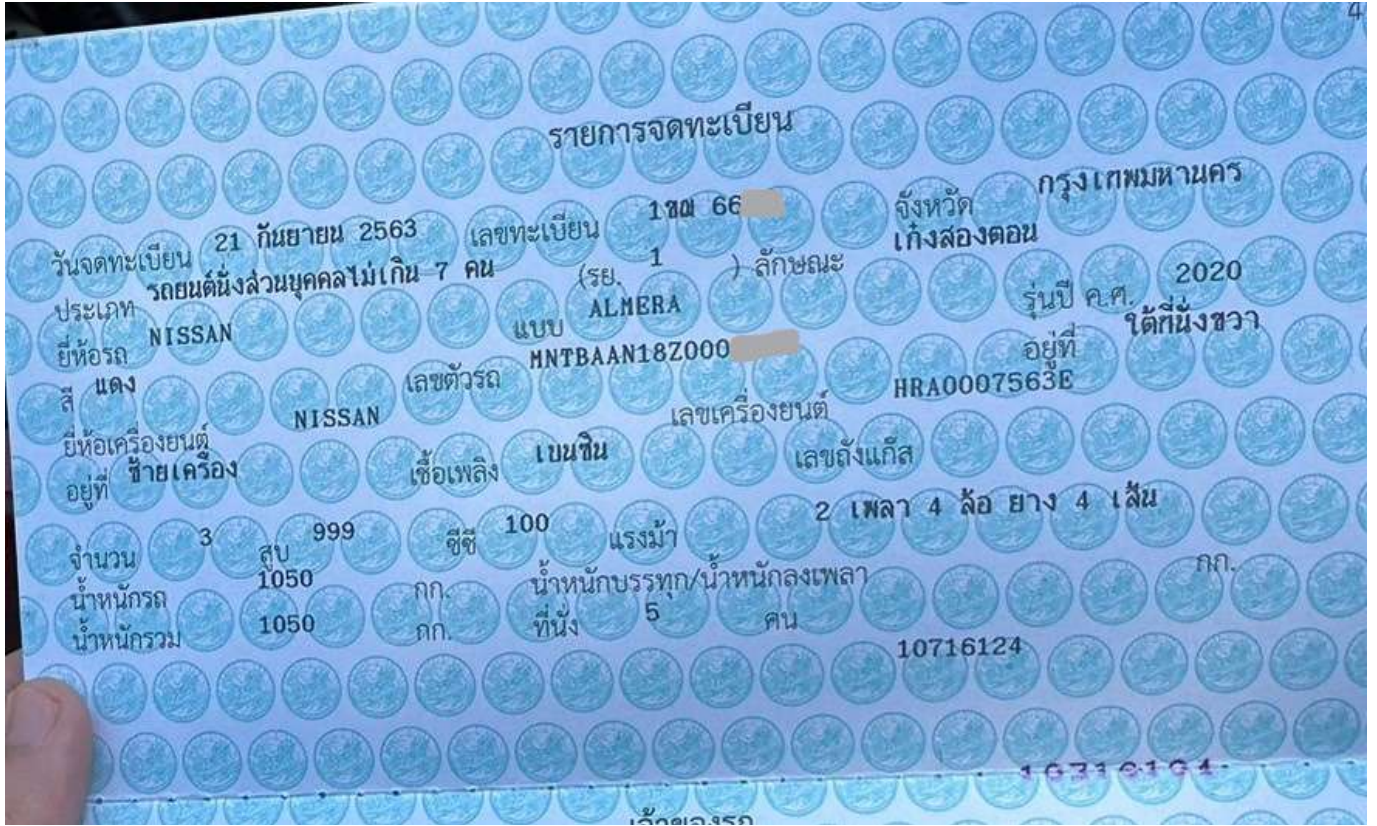 4
รายการจดทะเบียน
วันจดทะเบียน 21 กันยายน 2563 เลขทะเบียน 1ขฒ 66 จังหวัด กรุงเทพมหานคร
ประเภท รถยนต์นั่งส่วนบุคคลไม่เกิน 7 คน (รย. 1 ) ลักษณะ เก๋งสองตอน
ยี่ห้อรถ NISSAN แบบ ALMERA รุ่นปี ค.ศ. 2020
สี แดง เลขตัวรถ MNTBAAN18Z000 อยู่ที่ ใต้ที่นั่งขวา
ยี่ห้อเครื่องยนต์ NISSAN เลขเครื่องยนต์ HRA0007563E
อยู่ที่ ซ้ายเครื่อง เชื้อเพลิง เบนซิน เลขถังแก๊ส
จำนวน 3 สูบ 999 ซีซี 100 แรงม้า 2 เพลา 4 ล้อ ยาง 4 เส้น
น้ำหนักรถ 1050 กก. น้ำหนักบรรทุก/น้ำหนักลงเพลา กก.
น้ำหนักรวม 1050 กก. ที่นั่ง 5 คน
10716124
เจ้าของรถ